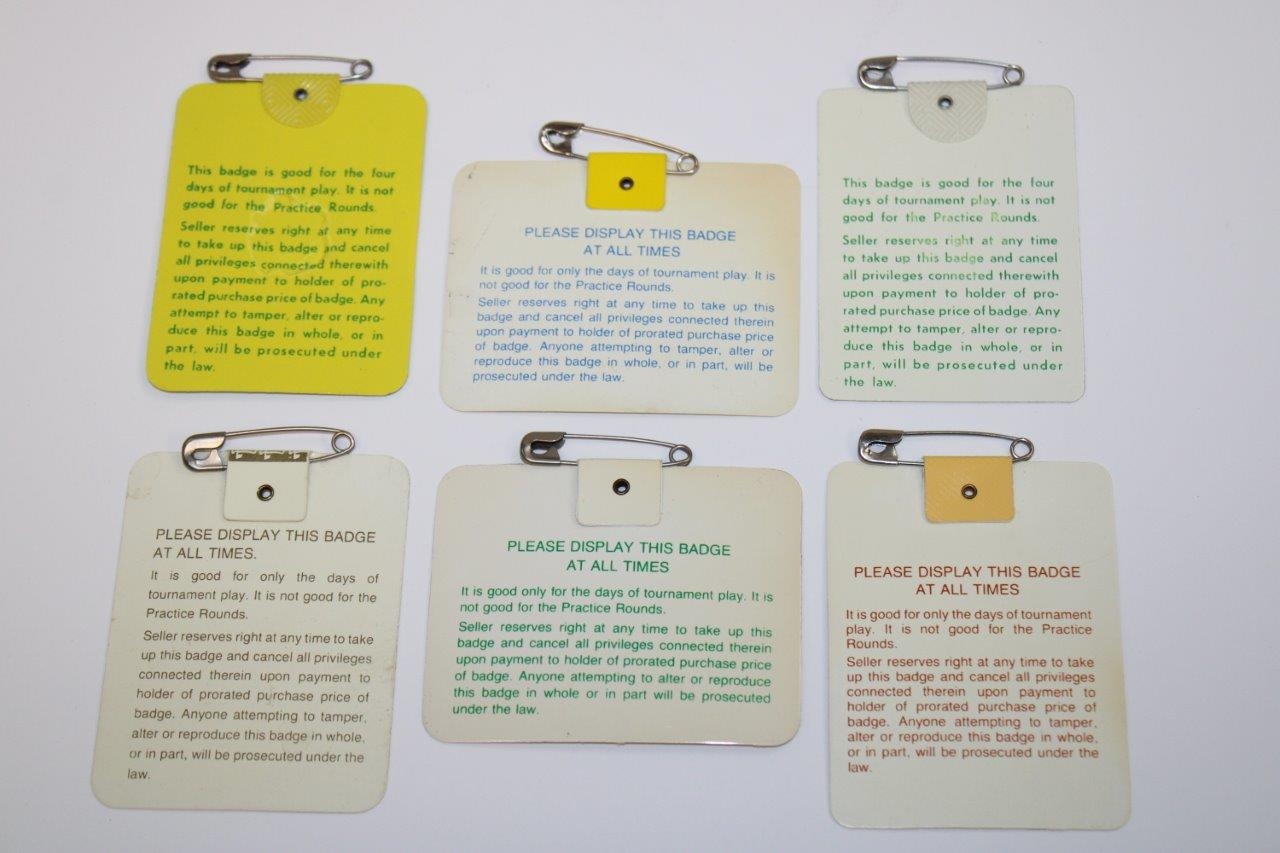 This badge is good for the four
days of tournament play. It is not
good for the Practice Rounds.
Seller reserves right at any time
to take up this badge and cancel
all privileges connected therewith
upon payment to holder of pro-
rated purchase price of badge. Any
attempt to tamper, alter or repro-
duce this badge in whole, or in
part, will be prosecuted under
the law.
PLEASE DISPLAY THIS BADGE
AT ALL TIMES
It is good for only the days of tournament play. It is
not good for the Practice Rounds.
Seller reserves right at any time to take up this
badge and cancel all privileges connected therein
upon payment to holder of prorated purchase price
of badge. Anyone attempting to tamper, alter or
reproduce this badge in whole, or in part, will be
prosecuted under the law.
This badge is good for the four
days of tournament play. It is not
good for the Practice Rounds.
Seller reserves right at any time
to take up this badge and cancel
all privileges connected therewith
upon payment to holder of pro-
rated purchase price of badge. Any
attempt to tamper, alter or repro-
duce this badge in whole, or in
part, will be prosecuted under
the law.
PLEASE DISPLAY THIS BADGE
AT ALL TIMES.
It is good for only the days of
tournament play. It is not good for the
Practice Rounds.
Seller reserves right at any time to take
up this badge and cancel all privileges
connected therein upon payment to
holder of prorated purchase price of
badge. Anyone attempting to tamper,
alter or reproduce this badge in whole,
or in part, will be prosecuted under the
law.
PLEASE DISPLAY THIS BADGE
AT ALL TIMES
It is good only for the days of tournament play. It is
not good for the Practice Rounds.
Seller reserves right at any time to take up this
badge and cancel all privileges connected therein
upon payment to holder of prorated purchase price
of badge. Anyone attempting to alter or reproduce
this badge in whole or in part will be prosecuted
under the law.
PLEASE DISPLAY THIS BADGE
AT ALL TIMES
It is good for only the days of tournament
play. It is not good for the Practice
Rounds.
Seller reserves right at any time to take
up this badge and cancel all privileges
connected therein upon payment to
holder of prorated purchase price of
badge. Anyone attempting to tamper,
alter or reproduce this badge in whole,
or in part, will be prosecuted under the
law.